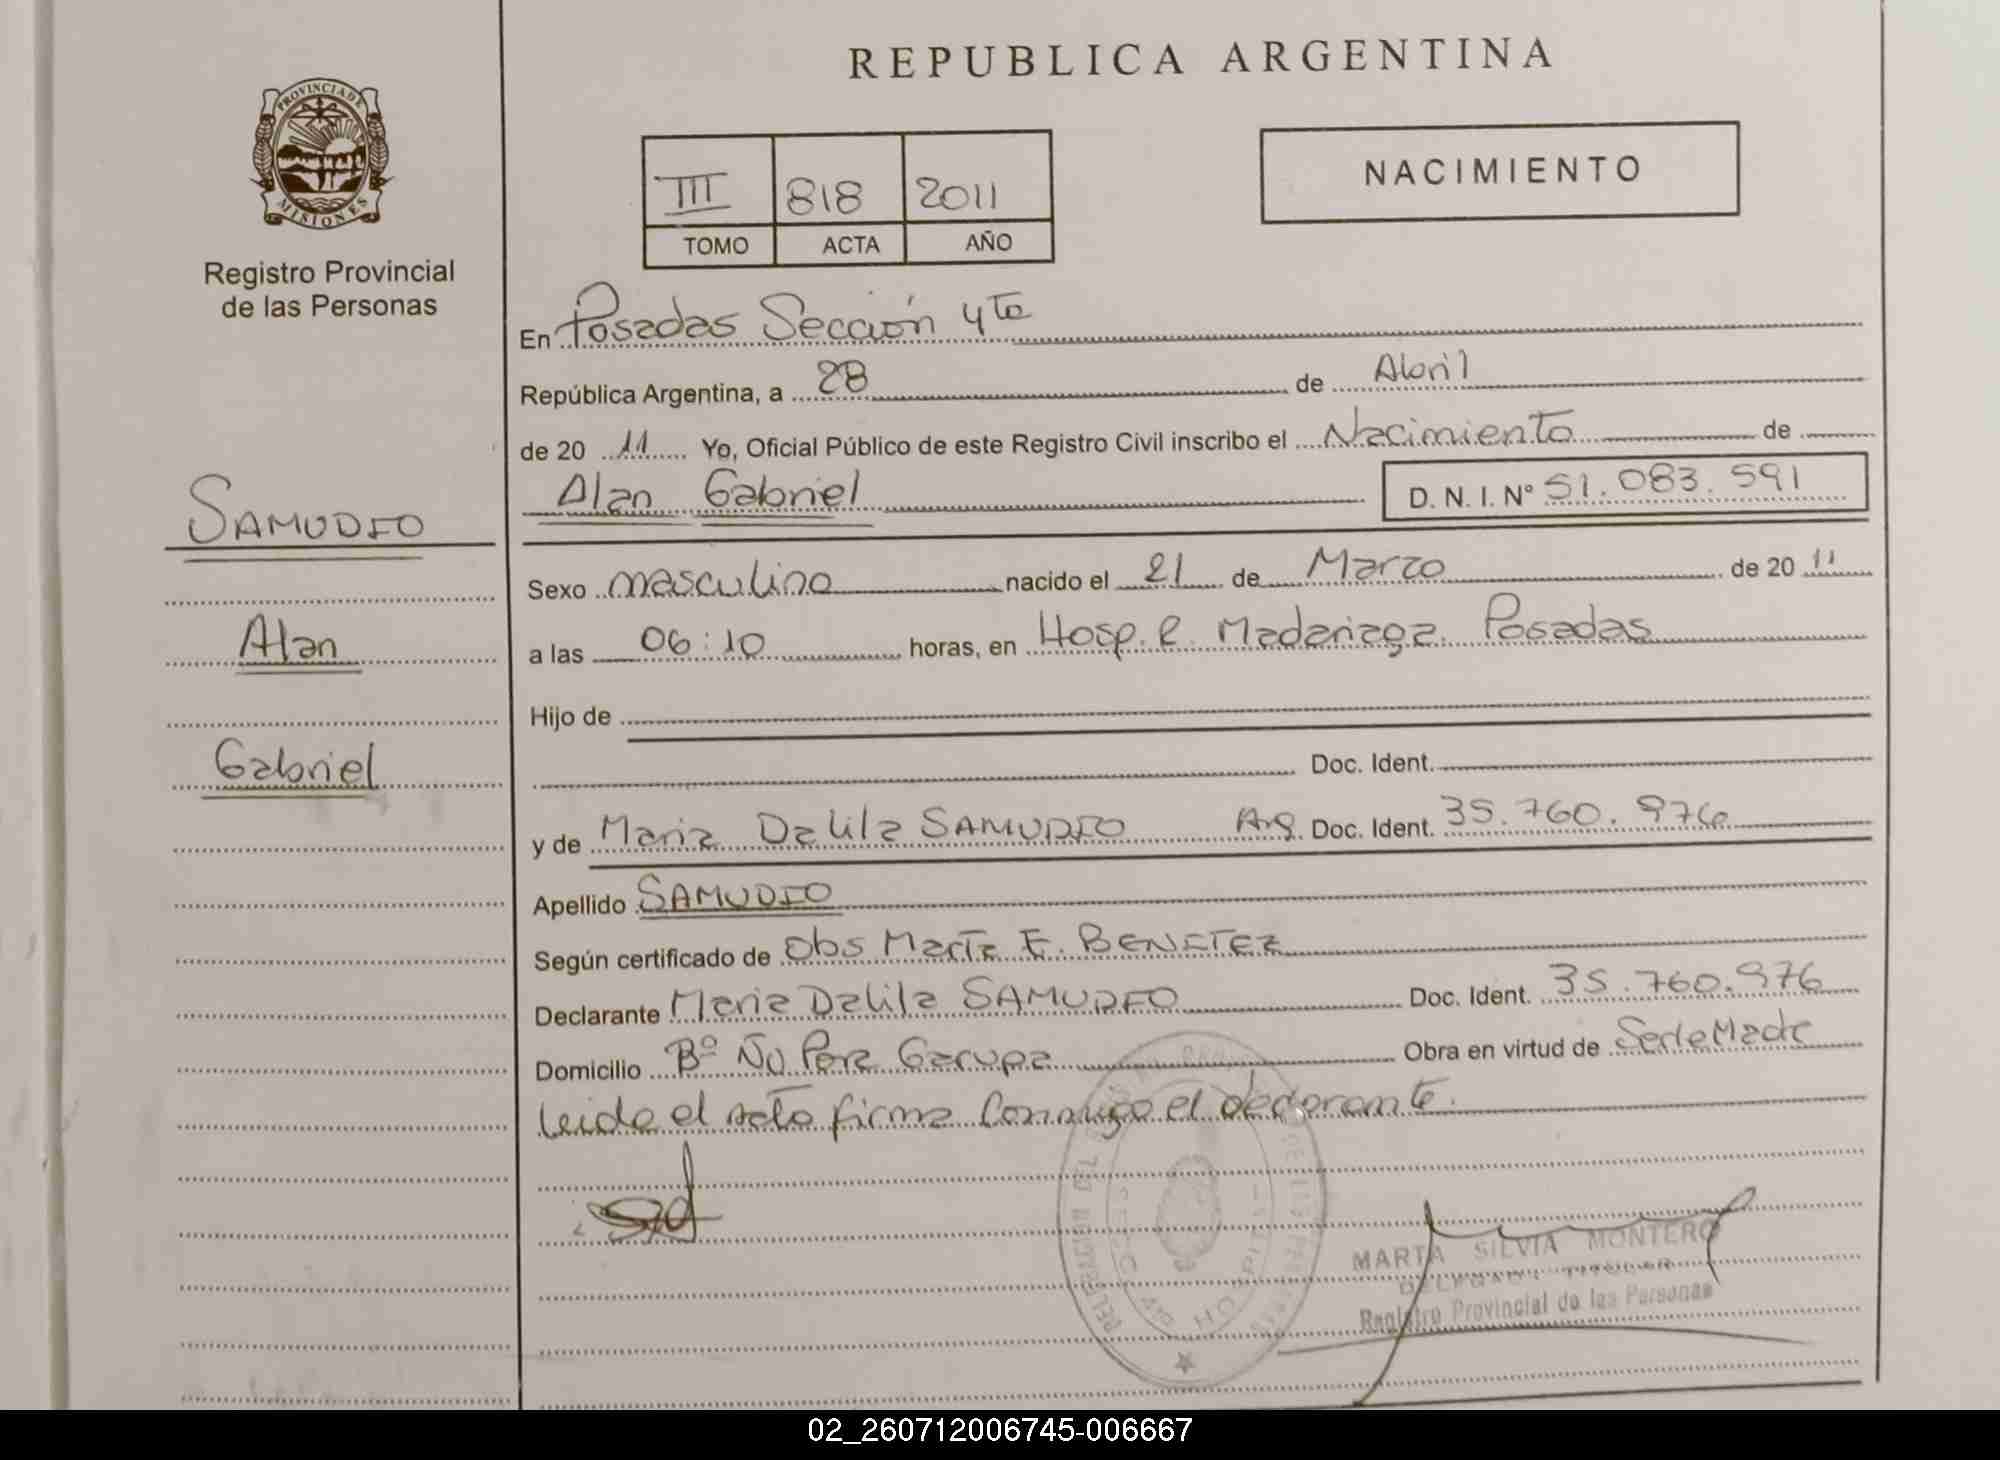 PROVINCIA DE
MISIONES
Registro Provincial
de las Personas
SAMUDIO
Alan
Gabriel
REPUBLICA ARGENTINA
III 818 2011
TOMO ACTA AÑO
NACIMIENTO
En Posadas Sección 4ta
República Argentina, a 28 de Abril
de 20 11 Yo, Oficial Público de este Registro Civil inscribo el Nacimiento de
Alan Gabriel D. N. I. Nº 51.083.591
Sexo masculino nacido el 21 de Marzo de 20 11
a las 06:10 horas, en Hosp. R. Madariaga. Posadas
Hijo de
Doc. Ident.
y de Maria Dalila SAMUDIO Arg. Doc. Ident. 35.760.976
Apellido SAMUDIO
Según certificado de Obs Marta E. BENITEZ
Declarante Maria Dalila SAMUDIO Doc. Ident. 35.760.976
Domicilio Bº Ñu Pora Garupa Obra en virtud de Ser la Madre
Leida el acta firma conmigo el declarante.
MARTA SILVIA MONTERO
DELEGADA TITULAR
Registro Provincial de las Personas
02_260712006745-006667